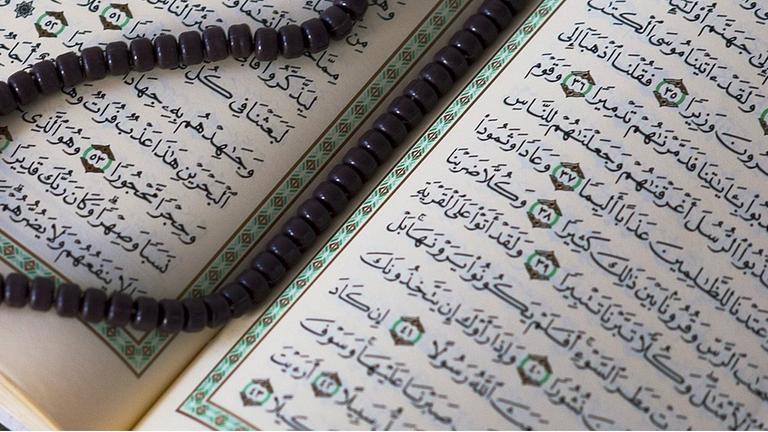 إِلَىٰ جَهَنَّمَ أُوْلَٰٓئِكَ
وَلَقَدْ ءَاتَيْنَا مُوسَى ٱلْكِتَٰبَ
هَٰرُونَ وَزِيرًا ٣٥ فَقُلْنَا ٱذْهَبَآ إِلَى
كَذَّبُوا۟ بِـَٔايَٰتِنَا فَدَمَّرْنَٰهُمْ تَدْمِيرًا ٣٦ وَقَوْمَ
كَذَّبُوا۟ ٱلرُّسُلَ أَغْرَقْنَٰهُمْ وَجَعَلْنَٰهُمْ لِلنَّاسِ
لِلظَّٰلِمِينَ عَذَابًا أَلِيمًا ٣٧ وَعَادًا وَثَمُودَا۟
ٱلرَّسِّ وَقُرُونًۢا بَيْنَ ذَٰلِكَ كَثِيرًا ٣٨ وَكُلًّا ضَرَبْنَا
ٱلْأَمْثَٰلَ وَكُلًّا تَبَّرْنَا تَتْبِيرًا ٣٩ وَلَقَدْ أَتَوْا۟ عَلَى ٱلْقَرْيَةِ
مَطَرَ ٱلسَّوْءِ أَفَلَمْ يَكُونُوا۟ يَرَوْنَهَا بَلْ
نُشُورًا ٤٠ وَإِذَا رَأَوْكَ إِن يَتَّخِذُونَكَ
ٱللَّهُ رَسُولًا ٤١ إِن كَادَ
صَبَرْنَا عَلَيْهَا وَسَوْفَ
سَبِيلًا ٤٢ أَرَءَيْتَ
٤٣
٥١
لِيَذَّكَّرُوا۟
لَبَعَثْنَا فِى كُلِّ
وَجَٰهِدْهُم بِهِۦ جِهَادًا
ٱلْبَحْرَيْنِ هَٰذَا عَذْبٌ فُرَاتٌ وَهَٰذَا
وَحِجْرًا مَّحْجُورًا ٥٣ وَهُوَ ٱلَّذِى
نَسَبًا وَصِهْرًا وَكَانَ رَبُّكَ قَدِيرًا
يَنفَعُهُمْ وَلَا يَضُرُّهُمْ